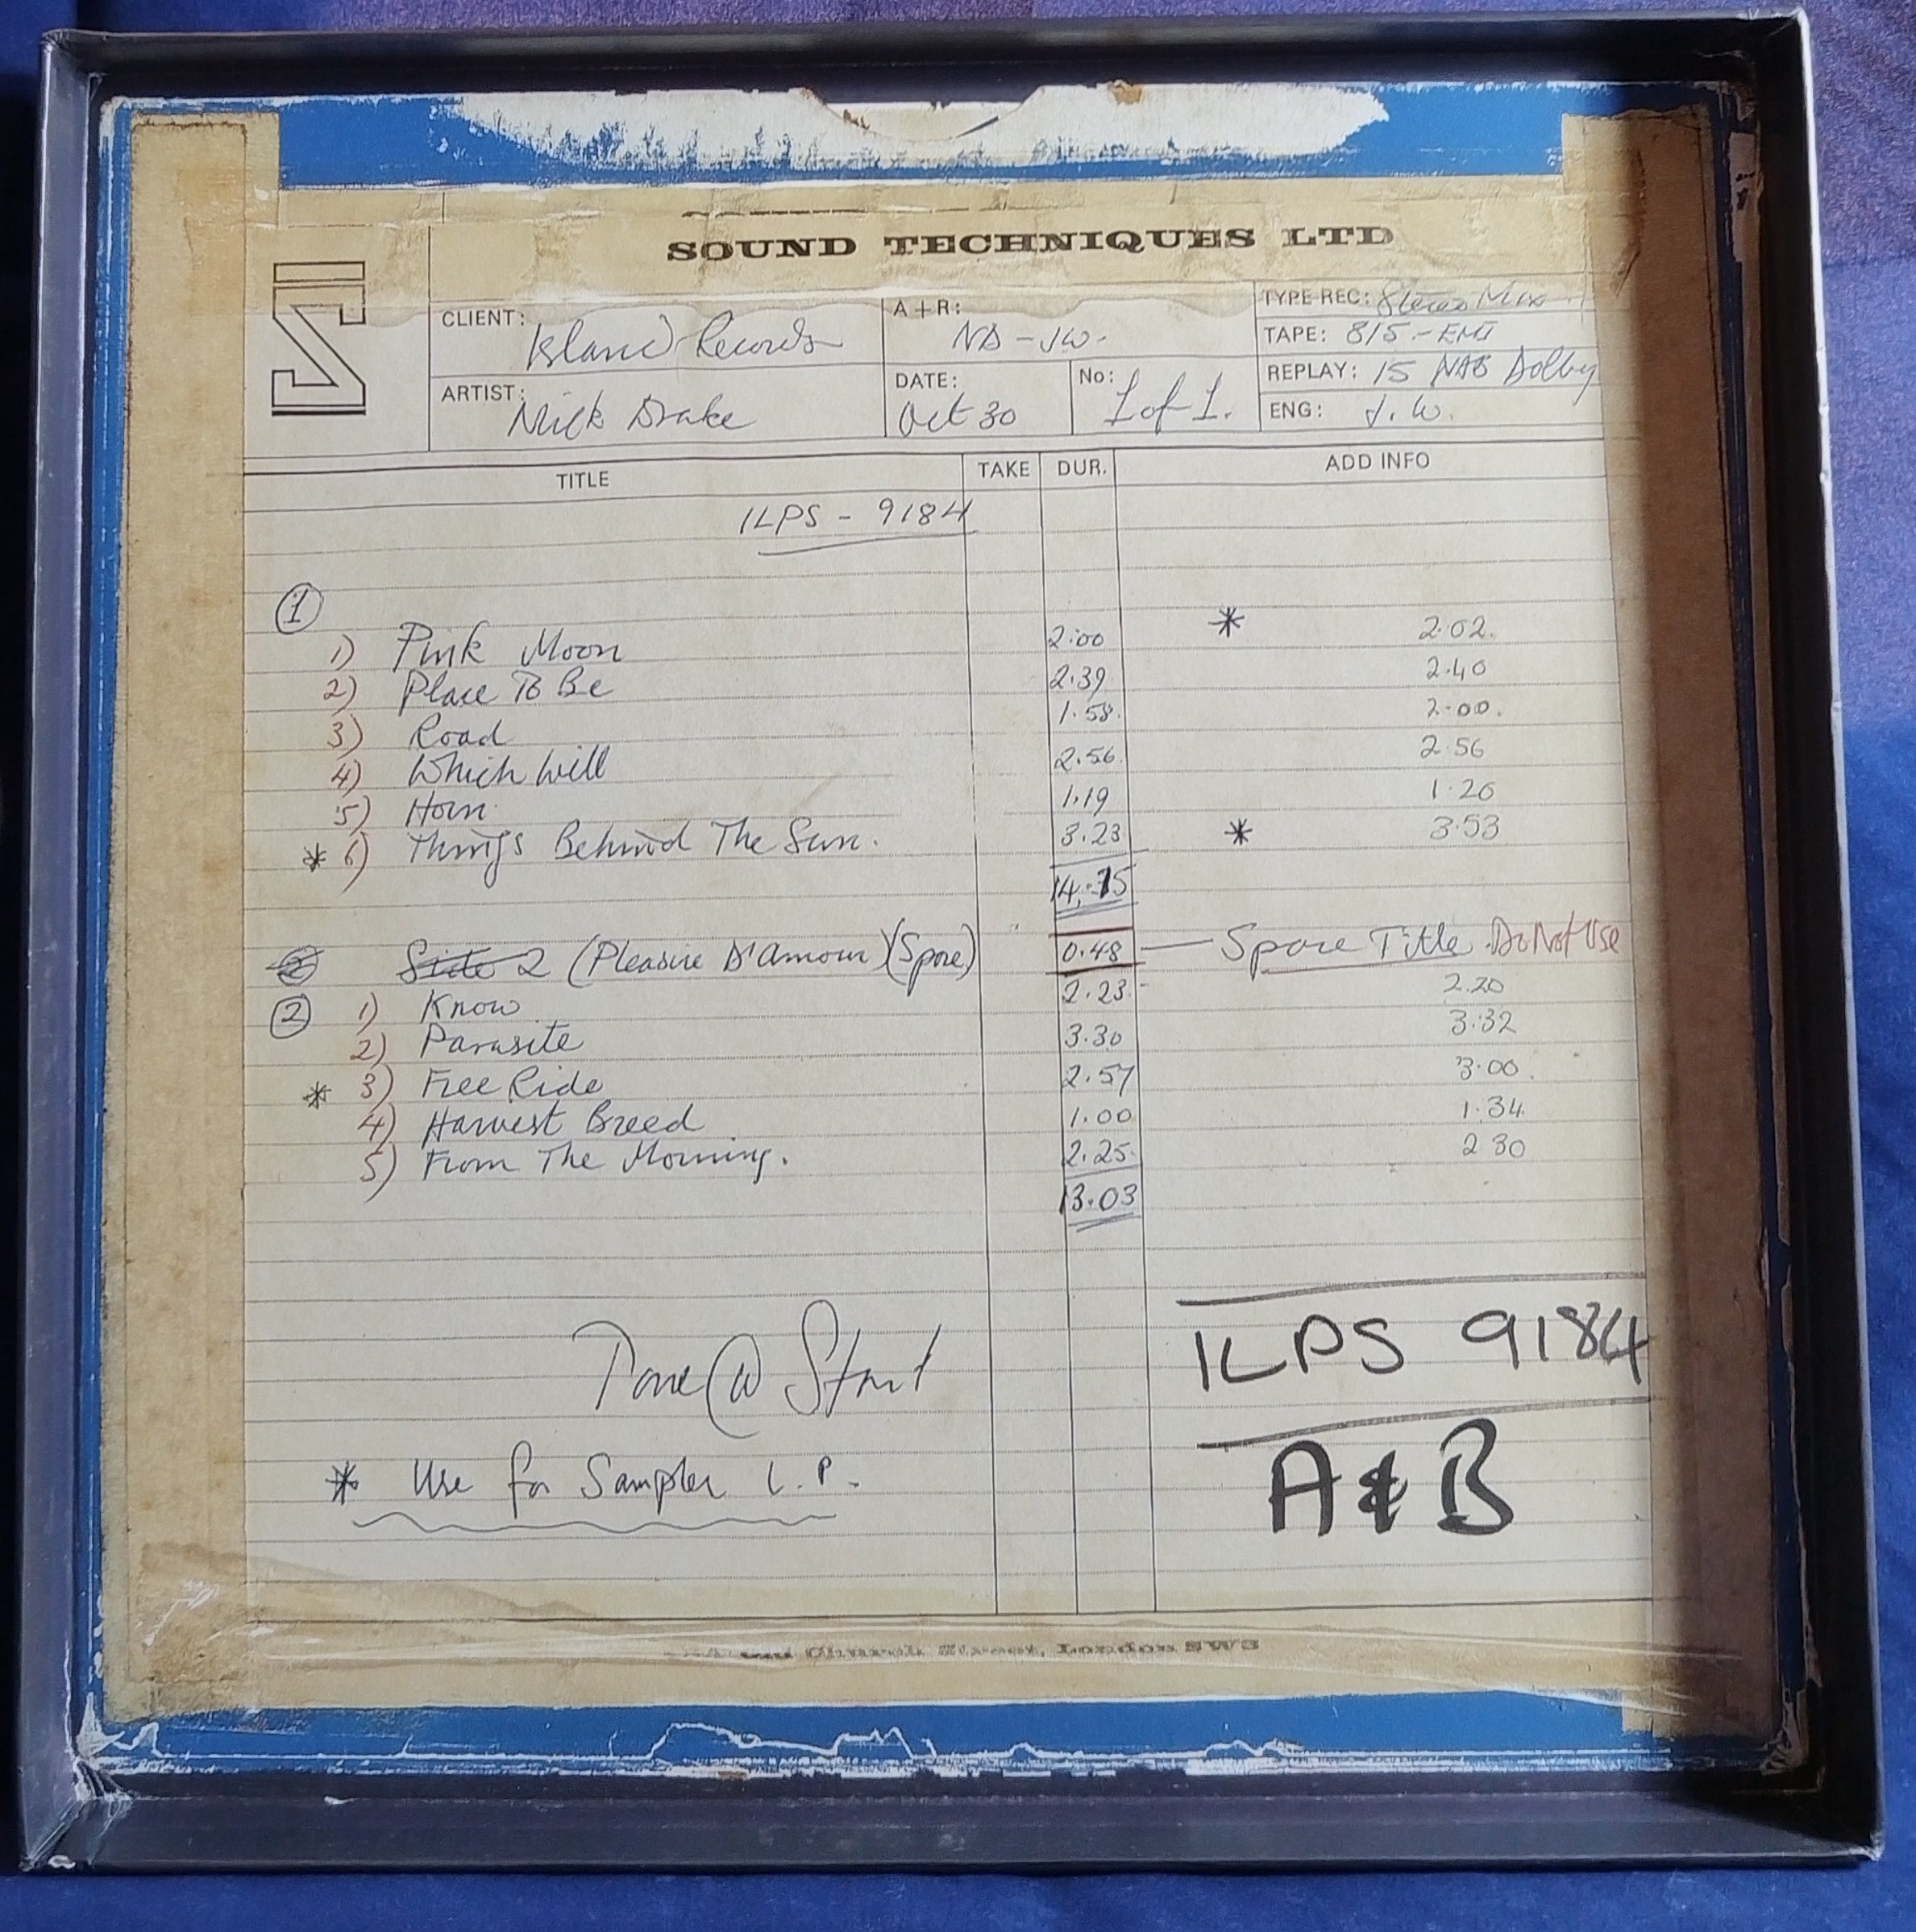 SOUND TECHNIQUES LTD
CLIENT: Island Records
A+R: ND - JW.
TYPE REC: Stereo Mix
TAPE: 815 - EMI
REPLAY: 15 NAB Dolby
ARTIST: Nick Drake
DATE: Oct 30
No: 1 of 1.
ENG: J.W.
TITLE TAKE DUR. ADD INFO
ILPS - 9184
①
1) Pink Moon 2:00 * 2.02.
2) Place To Be 2.39 2.40
3) Road 1.58. 2.00.
4) Which Will 2.56. 2.56
5) Horn. 1.19 1.20
* 6) Things Behind The Sun. 3.23 * 3.53
14.15
2 Side 2 (Pleasire D'Amour) (Spare) 0.48 — Spare Title Do Not Use
② 1) Know 2.23. 2.20
2) Parasite 3.30 3.32
* 3) Free Ride 2.57 3.00.
4) Harvest Breed 1.00 1.34
5) From The Morning. 2.25. 2 30
13.03
Tone @ Start
ILPS 9184
A & B
* Use for Sampler L.P.
Church Street, London SW3